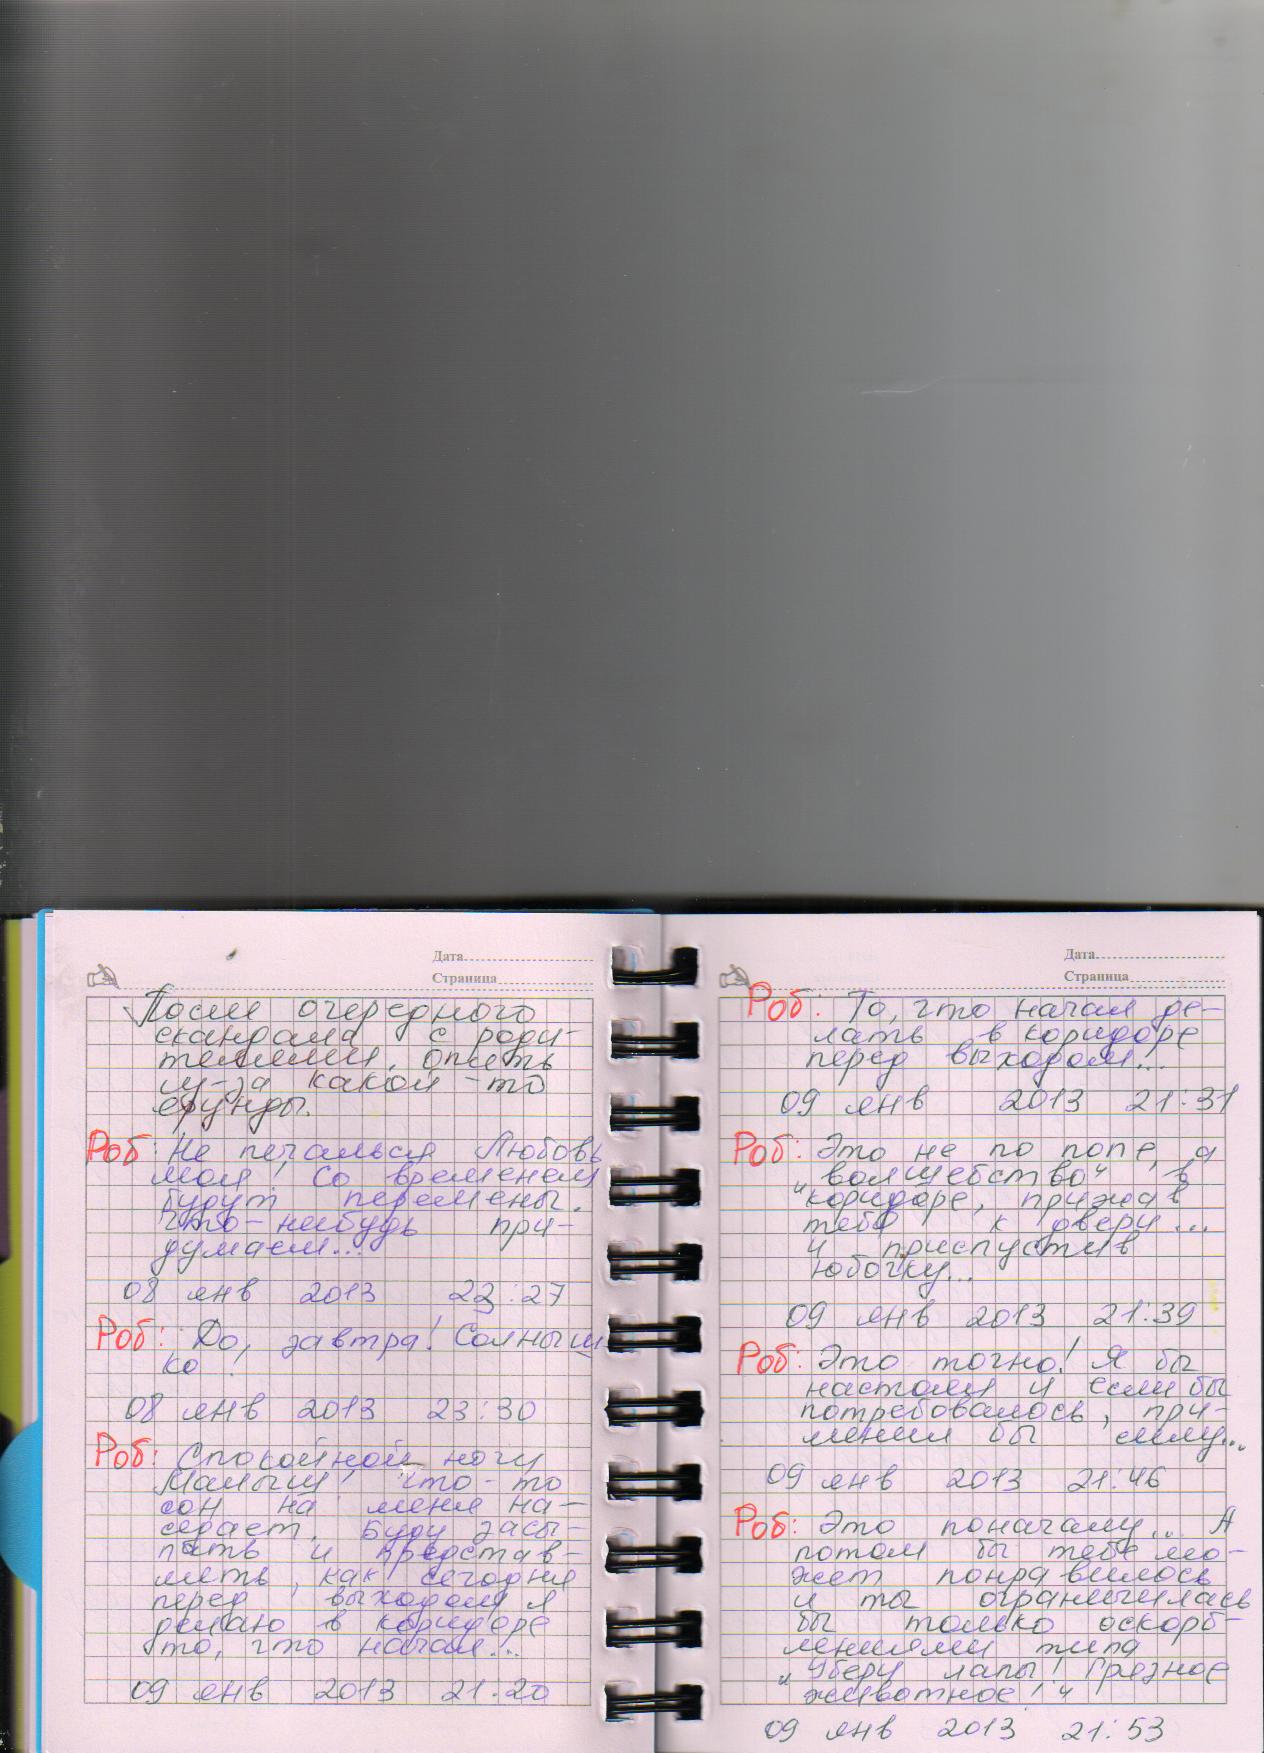 Дата
Страница
После очередного
скандала с роди-
телями, опять
из-за какой-то
ерунды.
Роб: Не печалься Любовь
моя! Со временем
будут перемены.
Что-нибудь при-
думаем...
08 янв 2013 23:27
Роб: До, завтра! Солныш
ко!
08 янв 2013 23:30
Роб: Спокойной ночи
Малыш! Что-то
сон на меня на-
седает. Буду засы-
пать и представ-
лять, как сегодня
перед выходом я
делаю в коридоре
то, что начал...
09 янв 2013 21:20
Дата
Страница
Роб: То, что начал де-
лать в коридоре
перед выходом...
09 янв 2013 21:31
Роб: Это не по попе, а
„волшебство" в
коридоре, прижав
тебя к двери...
и приспустив
юбочку...
09 янв 2013 21:39
Роб: Это точно! Я бы
настоял и если бы
потребовалось, при-
менил бы силу...
09 янв 2013 21:46
Роб: Это поначалу... А
потом бы тебе мо-
жет понравилось
и ты ограничилась
бы только оскорб-
лениями типа
„Убери лапы! Грязное
животное!"
09 янв 2013 21:53